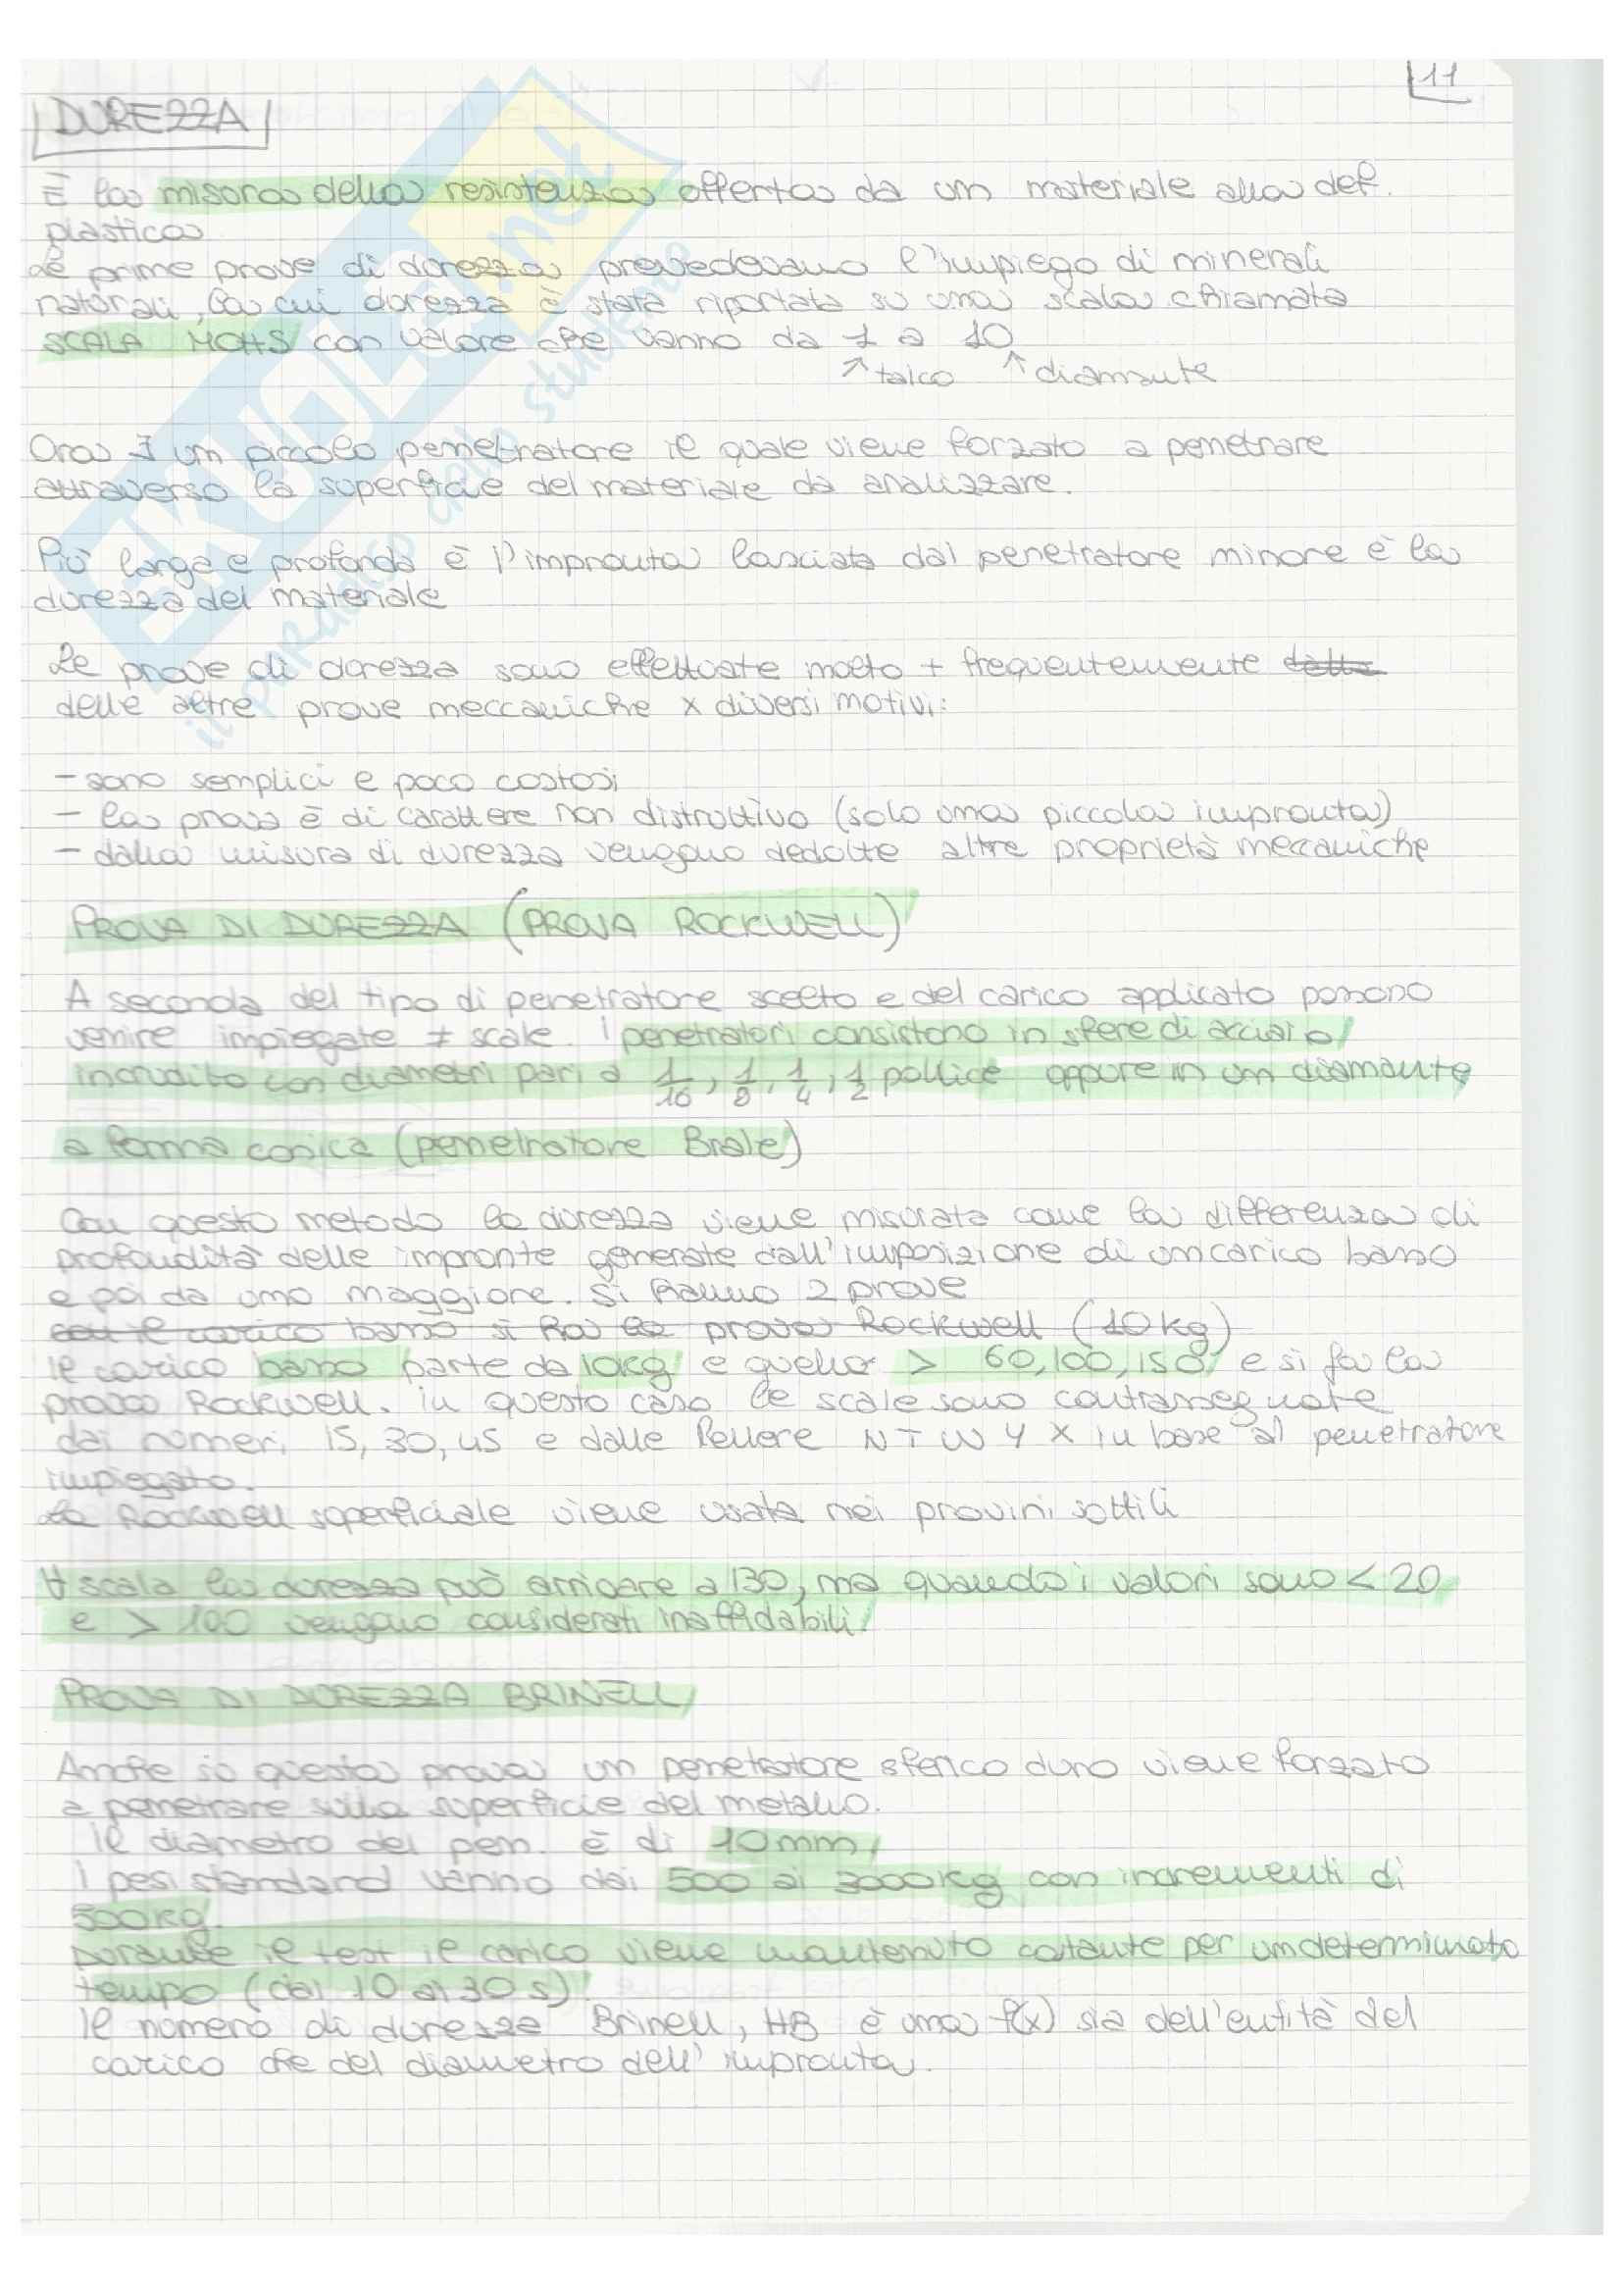 11
DUREZZA
È la misura della resistenza offerta da un materiale alla def.
plastica
Le prime prove di durezza prevedevano l'impiego di minerali
naturali, la cui durezza è stata riportata su una scala chiamata
SCALA MOHS con valore che vanno da 1 a 10
↑ talco ↑ diamante
Ora ∃ un piccolo penetratore il quale viene forzato a penetrare
attraverso la superficie del materiale da analizzare.
Più larga e profonda è l'impronta lasciata dal penetratore minore è la
durezza del materiale
Le prove di durezza sono effettuate molto + frequentemente
delle altre prove meccaniche x diversi motivi:
- sono semplici e poco costosi
- la prova è di carattere non distruttivo (solo una piccola impronta)
- dalla misura di durezza vengono dedotte altre proprietà meccaniche
PROVA DI DUREZZA (PROVA ROCKWELL)
A seconda del tipo di penetratore scelto e del carico applicato possono
venire impiegate ≠ scale. I penetratori consistono in sfere di acciaio
incrudito con diametri pari a 1/16, 1/8, 1/4, 1/2 pollice oppure in un diamante
a forma conica (penetratore Brale)
Con questo metodo la durezza viene misurata come la differenza di
profondità delle impronte generate dall'imposizione di un carico basso
e poi da uno maggiore. Si hanno 2 prove
con il carico basso si ha la prova Rockwell (10kg)
il carico basso parte da 10kg e quello > 60,100,150 e si fa la
prova Rockwell. in questo caso le scale sono contrassegnate
dai numeri 15, 30, 45 e dalle lettere N T W Y X in base al penetratore
impiegato.
La Rockwell superficiale viene usata nei provini sottili
∀ scala la durezza può arrivare a 130, ma quando i valori sono < 20
e > 100 vengono considerati inaffidabili.
PROVA DI DUREZZA BRINELL
Anche in questa prova un penetratore sferico duro viene forzato
a penetrare sulla superficie del metallo.
Il diametro del pen. è di 10mm
I pesi standard vanno dai 500 ai 3000kg con incrementi di
500kg.
Durante il test il carico viene mantenuto costante per un determinato
tempo (dai 10 ai 30 s)
Il numero di durezza Brinell, HB è una f(x) sia dell'entità del
carico che del diametro dell'impronta.
SKUOLA.net
il paradiso dello studente